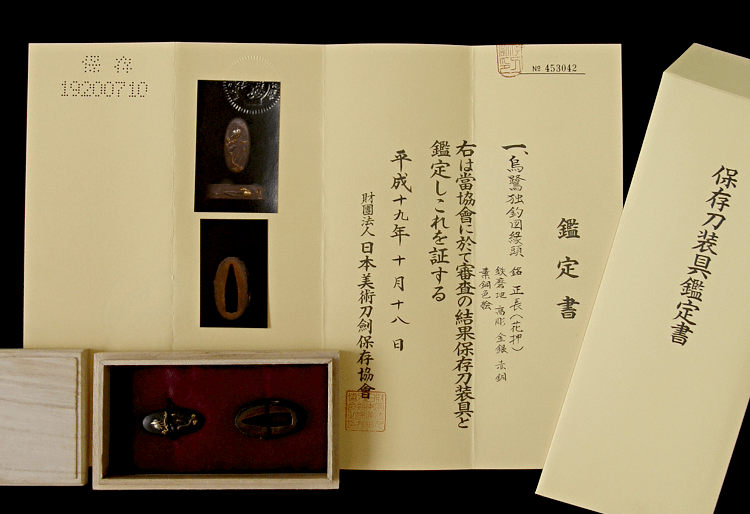 No 453042
鑑定書
一、烏鷺独釣図縁頭
銘 正長(花押)
鉄磨地 高彫 金銀 赤銅
素銅色絵
右は當協會に於て審査の結果保存刀装具と
鑑定しこれを証する
平成十九年十月十八日
財團法人 日本美術刀劍保存協會
保存
19200710
保存刀装具鑑定書